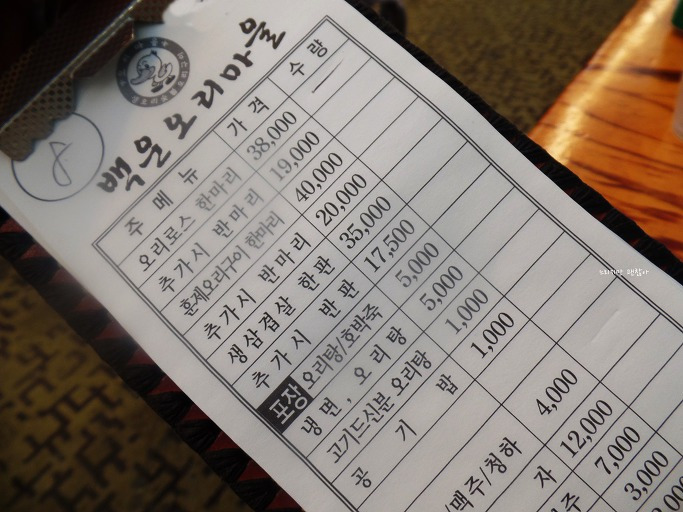 8
백운오리마을
주 메 뉴 가 격 수 량
오리로스 한마리 38,000
추가시 반마리 19,000
훈제오리구이 한마리 40,000
추가시 반마리 20,000
생삼겹살 한판 35,000
추가시 반판 17,500
포장 오리탕/호박죽 5,000
냉면, 오리탕 5,000
고기드신분 오리탕 1,000
공 기 밥 1,000
/맥주/청하 4,000
자 12,000
주 7,000
3,000
괜찮아